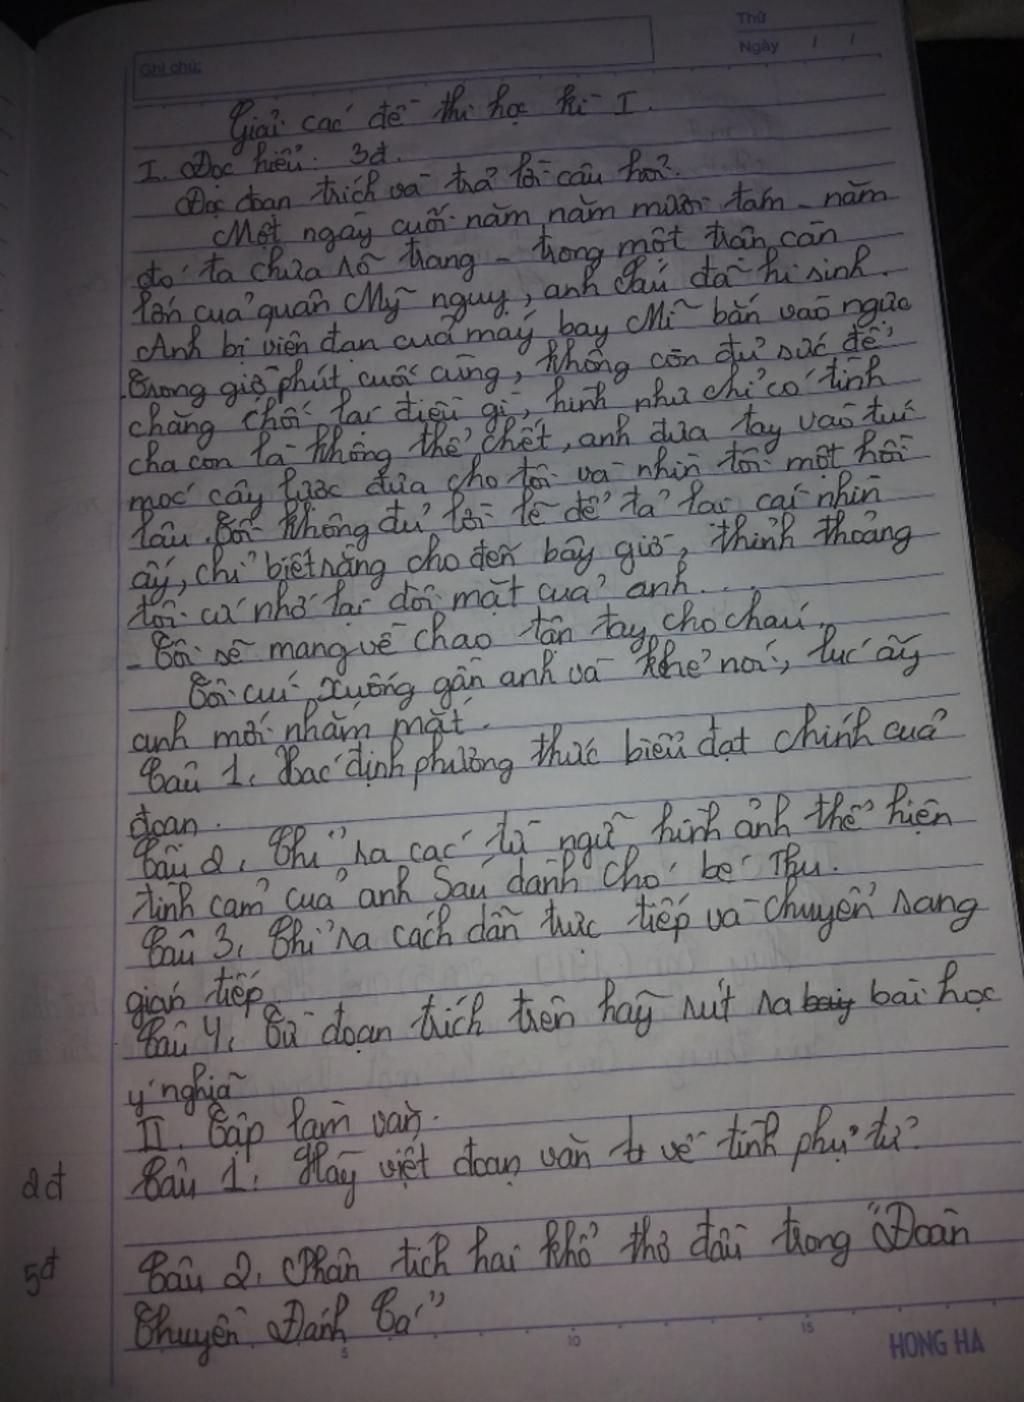 Thứ
Ngày / /
Ghi chú:
Giải các đề thi học kì I.
I. Đọc hiểu. 3đ.
Đọc đoạn trích và trả lời câu hỏi.
Một ngày cuối năm năm mươi tám - năm
đó ta chưa võ trang - trong một trận càn
lớn của quân Mỹ ngụy, anh Sáu đã hi sinh.
Anh bị viên đạn của máy bay Mĩ bắn vào ngực
Trong giờ phút cuối cùng, không còn đủ sức để
chăng chối lại điều gì, hình như chỉ có tình
cha con là không thể chết, anh đưa tay vào túi
móc cây lược đưa cho tôi và nhìn tôi một hồi
lâu. Tôi không đủ lời lẽ để tả lại cái nhìn
ấy, chỉ biết rằng cho đến bây giờ, thỉnh thoảng
tôi cứ nhớ lại đôi mắt của anh...
- Tôi sẽ mang về trao tận tay cho cháu.
Tôi cúi xuống gần anh và khẽ nói, lúc ấy
anh mới nhắm mắt.
Câu 1. Xác định phương thức biểu đạt chính của
đoạn.
Câu 2. Chỉ ra các từ ngữ hình ảnh thể hiện
tình cảm của anh Sáu dành cho bé Thu.
Câu 3. Chỉ ra cách dẫn trực tiếp và chuyển sang
gián tiếp.
Câu 4. Từ đoạn trích trên hãy rút ra bài học
ý nghĩa
II. Tập làm văn.
2đ Câu 1. Hãy viết đoạn văn về tình phụ tử?
5đ Câu 2. Phân tích hai khổ thơ đầu trong "Đoàn
Thuyền Đánh Cá"
5 10 15
HONG HA